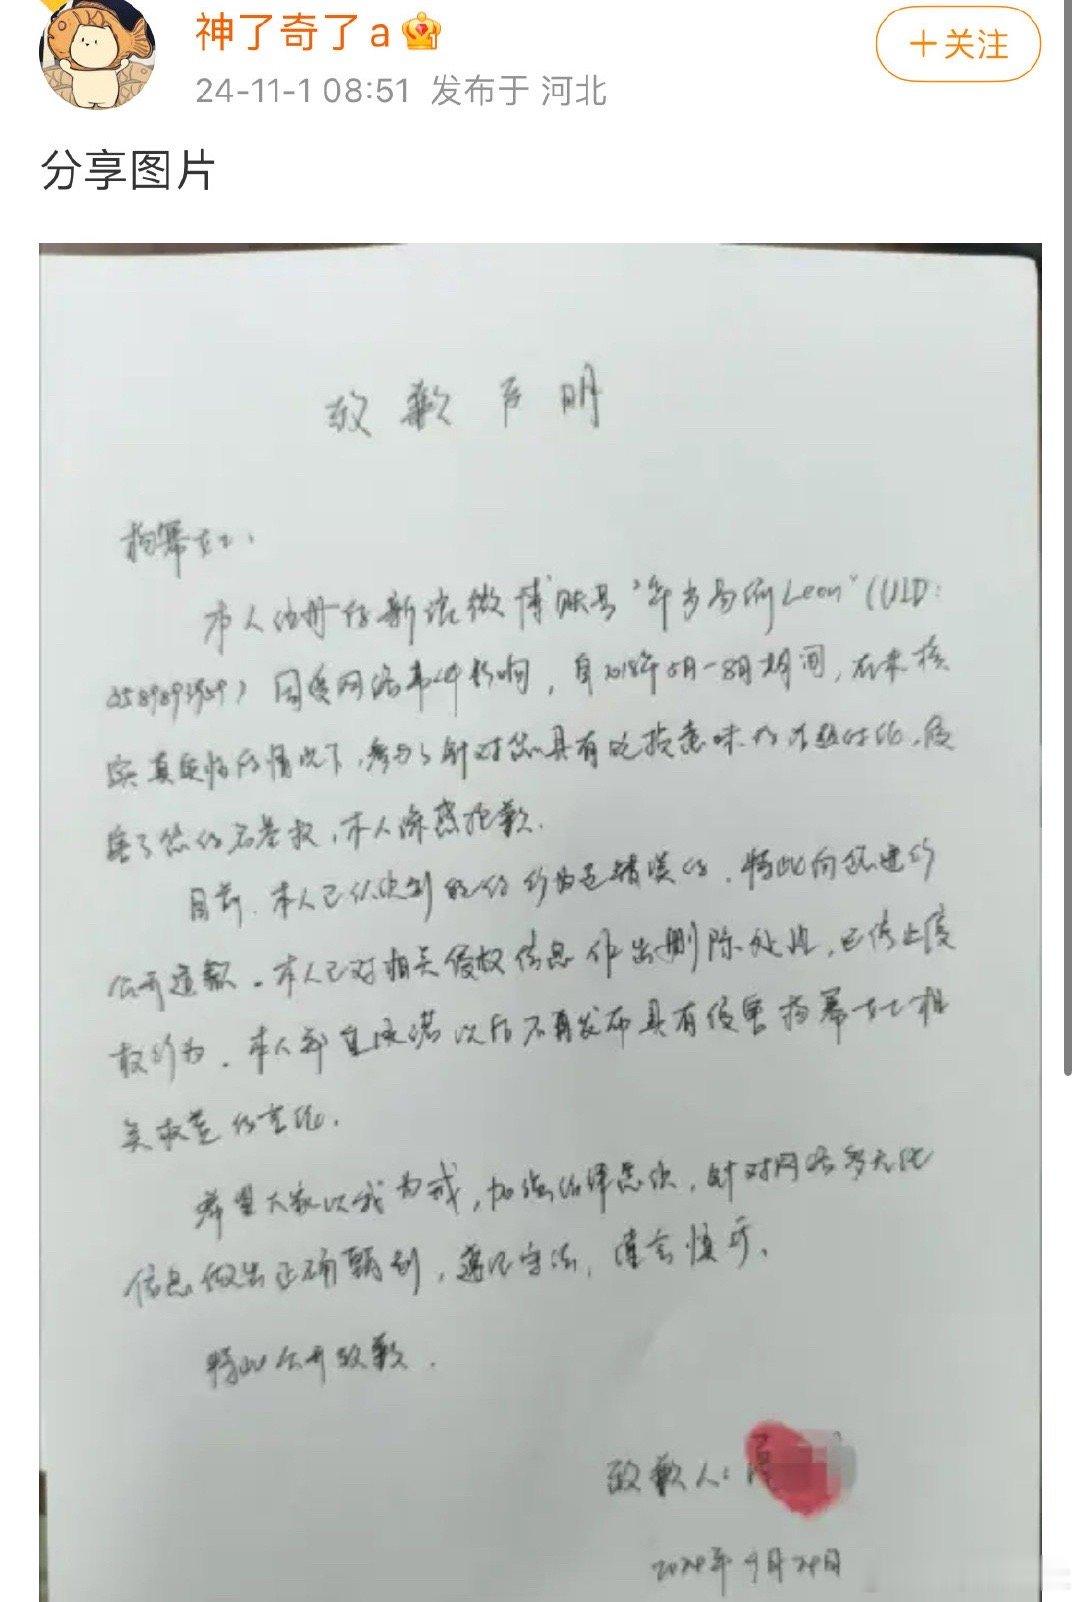 神了奇了a
+关注
24-11-1 08:51 发布于 河北
分享图片
致歉声明
杨幂女士:
本人使用的新浪微博账号"年少为何Leon"(UID:
) 因受网络事件影响，自2018年5月-8月期间，在未核
实真实性的情况下，参与了针对您具有贬损意味的话题讨论，侵
害了您的名誉权，本人深感抱歉。
目前，本人已认识到的行为是错误的，特此向您进行
公开道歉。本人已对相关侵权信息作出删除处理，已停止侵
权行为。本人郑重承诺以后不再发布具有侵害杨幂女士相
关权益的言论。
希望大家以我为戒，加强法律意识，针对网络多元化
信息做出正确甄别，遵纪守法，谨言慎行。
特此公开致歉。
致歉人:
2024年9月29日